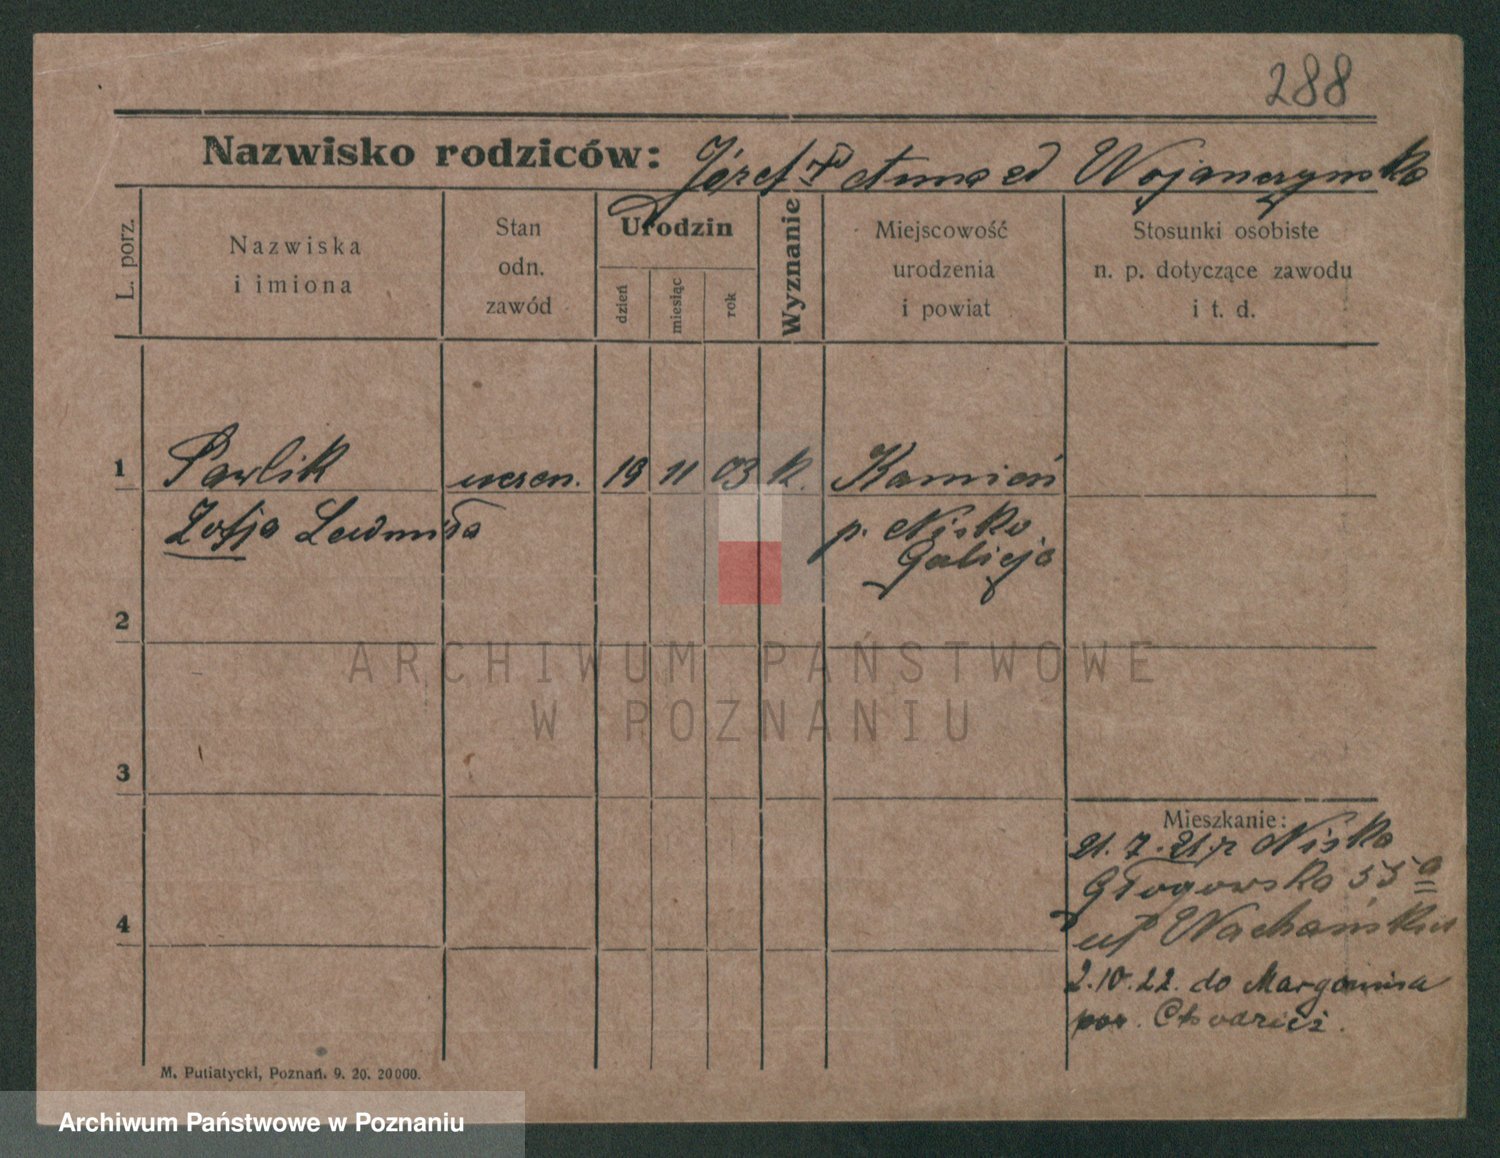 288
Nazwisko rodziców: Józef P. Anna zd Wojanczynska
L. porz.
Nazwiska
i imiona
Stan
odn.
zawód
Urodzin
dzień
miesiąc
rok
Wyznanie
Miejscowość
urodzenia
i powiat
Stosunki osobiste
n. p. dotyczące zawodu
i t. d.
1 Pawlik uczen. 19 11 03 k. Kamień
Zofja Ludmiła p. Nisko
Galicja
2
3
4
Mieszkanie:
21.7.21. z Nisko
Głogowska 55 a
2.10.22. do Margonina
pow. Chodzież.
M. Putiatycki, Poznań. 9. 20. 20000.
ARCHIWUM PAŃSTWOWE
W POZNANIU
Archiwum Państwowe w Poznaniu